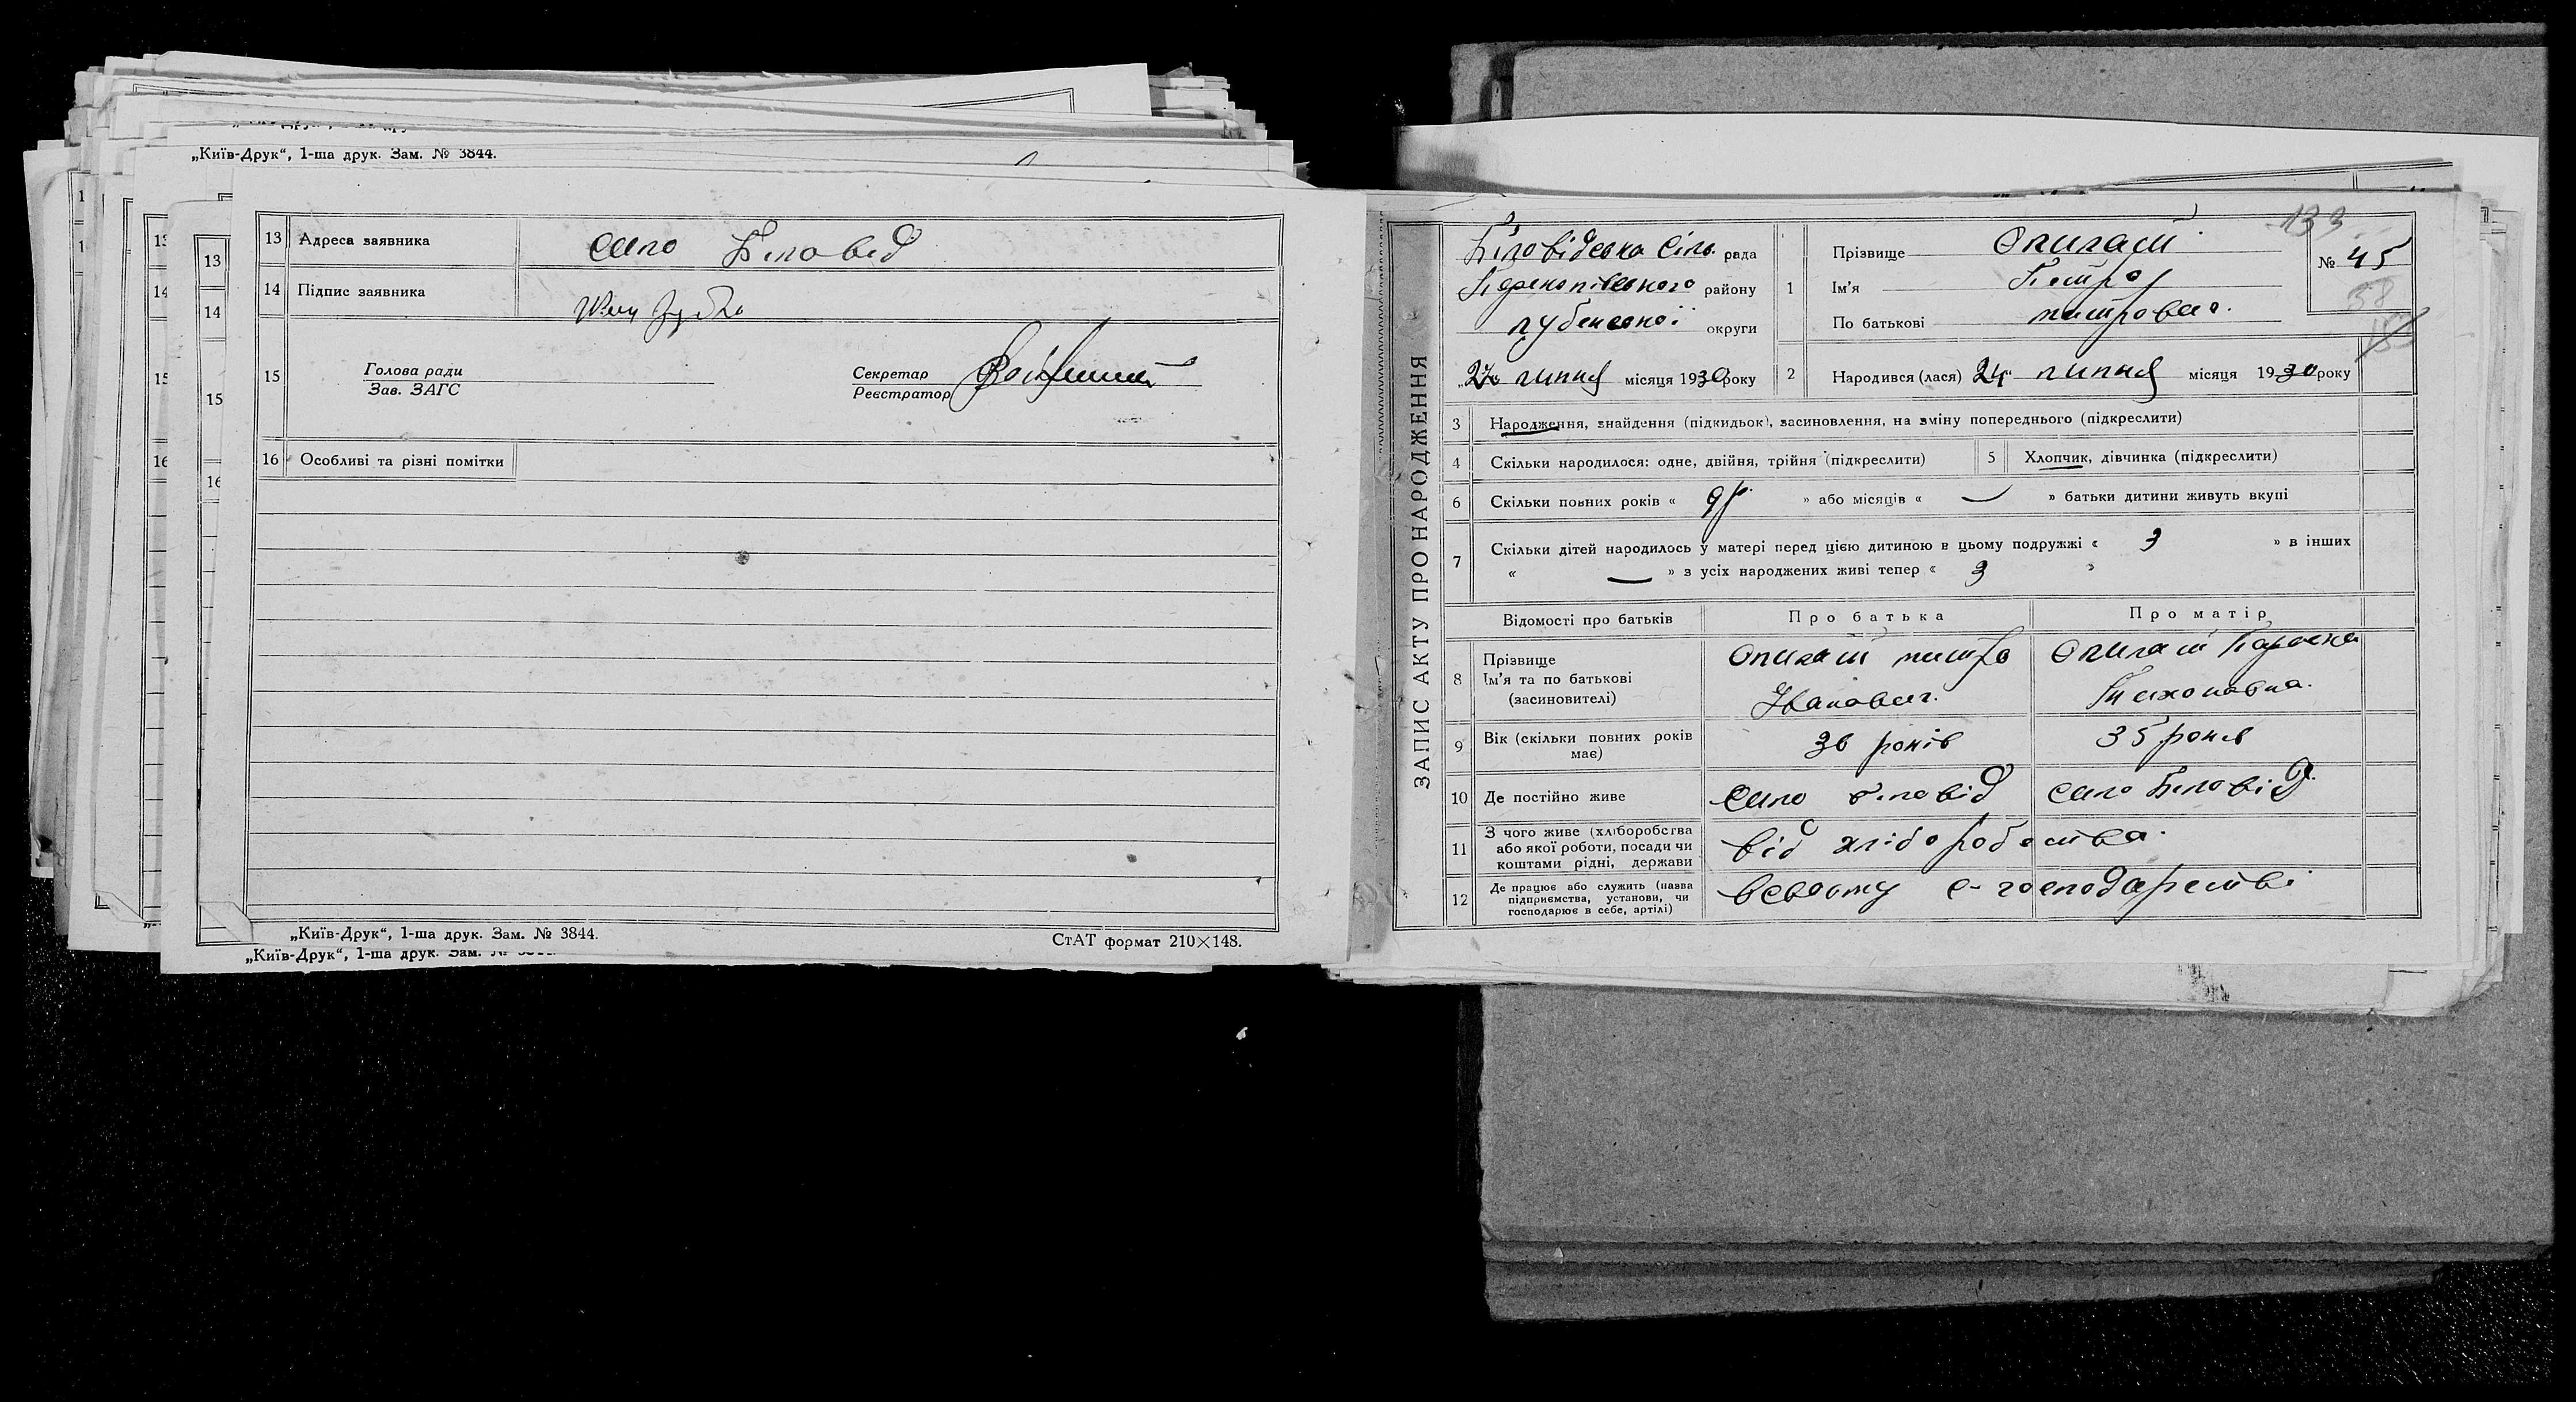 „Київ-Друк“, 1-ша друк. Зам. № 3844.
13 Адреса заявника село Біловед
14 Підпис заявника
15 Голова ради
Зав. ЗАГС
Секретар
Реєстратор
16 Особливі та різні помітки
„Київ-Друк“, 1-ша друк. Зам. № 3844.
СтАТ формат 210×148.
„Київ-Друк“, 1-ша друк. Зам. №
ЗАПИС АКТУ ПРО НАРОДЖЕННЯ
133
Біловідська сіль. рада
Перекопівського району
лубенської округи
27 липня місяця 1930 року
1 Прізвище
Ім'я Петро
По батькові петрович.
№ 45
58
2 Народився (лася) 24 липня місяця 1930 року
3 Народження, знайдення (підкидьок), засиновлення, на зміну попереднього (підкреслити)
4 Скільки народилося: одне, двійня, трійня (підкреслити)
5 Хлопчик, дівчинка (підкреслити)
6 Скільки повних років « 9 р. » або місяців « — » батьки дитини живуть вкупі
7 Скільки дітей народилось у матері перед цією дитиною в цьому подружжі « 3 » в інших
« — » з усіх народжених живі тепер « 3 »
Відомості про батьків Про батька Про матір
8 Прізвище
Ім'я та по батькові
(засиновителі)
петро
Іванович.
Параска
Тихоновна.
9 Вік (скільки повних років має) 36 років 35 років
10 Де постійно живе село біловід село Біловід.
11 З чого живе (хліборобства
або якої роботи, посади чи
коштами рідні, держави
від хліборобства.
12 Де працює або служить (назва
підприємства, установи, чи
господарює в себе, артілі)
всвоому с-господарстві